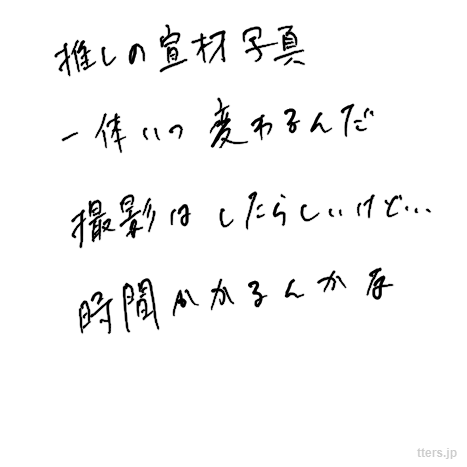 推しの宣材写真
一体いつ変わるんだ
撮影はしたらしいけど...
時間かかるんかな
tters.jp